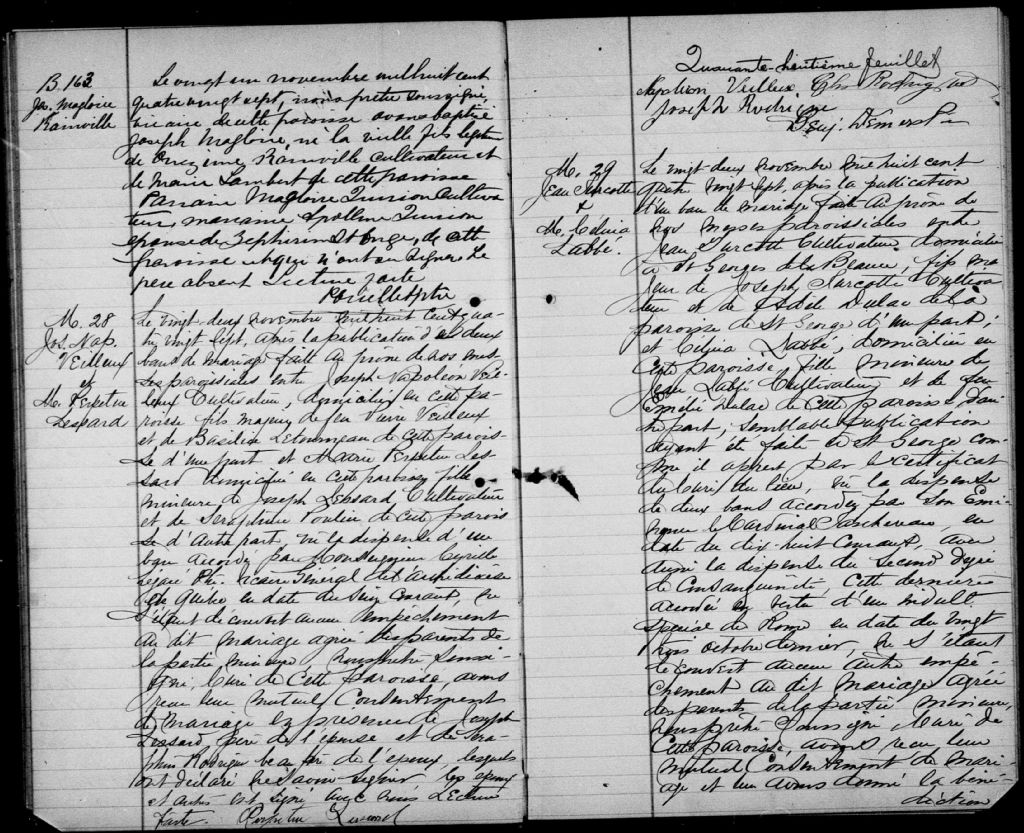 B. 163
Jos. Magloire
Rainville
Le vingt un novembre mil huit cent
quatre vingt sept, nous prêtre soussigné
vicaire de cette paroisse avons baptisé
Joseph Magloire, né la veille fils légitime
de Onezime Rainville cultivateur et
de Marie Lambert de cette paroisse
Parrain Magloire cultiva
teur, marraine Apolline
épouse de Zephirin St Onge, de cette
paroisse et qui n'ont su signer. Le
père absent Lecture faite
Ptre
M. 28
Jos. Nap.
Veilleux
et
M. Perpetue
Lessard
Le vingt-deux novembre mil huit cent qua-
tre vingt sept, après la publication de deux
bans de mariage faite au prône de nos mes-
ses paroissiales entre Joseph Napoleon Veil-
leux Cultivateur, domicilié en cette pa-
roisse fils majeur de feu Pierre Veilleux
et de Basilise Letourneau de cette parois-
se d'une part et Marie Perpetue Les-
sard domiciliée en cette paroisse fille
mineure de Joseph Lessard Cultivateur
et de Seraphine Poulin de cette parois
se d'autre part, vu la dispense d'un
ban accordée par Monseigneur Cyrille
Legare Vicaire General de l'archidiocèse
de Québec en date du seize Courant, ne
s'étant découvert aucun empêchement
au dit mariage agréé des parents de
la partie mineure, nous prêtre soussi-
gné, Curé de Cette Paroisse, avons
reçu leur mutuel Consentement
de mariage en présence de Joseph
Lessard, père de l'épouse et de
Rodrigue beau père de l'époux, lesquels
ont déclaré ne savoir signer les époux
et autres ont signé avec nous Lecture
faite. Perpetue Lessard
Quarante-huitième feuillet
Napoléon Veilleux,
Joseph Rodrigue
Benj. Demers Ptre
M. 29
Jean Turcotte
&
M. Célina
Labbé.
Le vingt-deux novembre mil huit cent
quatre vingt sept, après la publication
d'un ban de mariage faite au prône de
nos messes paroissiales entre
Jean Turcotte Cultivateur domicilié
à St Georges de la Beauce, fils ma
jeur de Joseph Turcotte Cultiva
teur et de Dulac de la
paroisse de St George d'une part;
et Célina Labbé, domiciliée en
cette paroisse, fille mineure de
Jean Labbé Cultivateur et de feu
Emélie Dulac de cette paroisse d'au-
tre part, semblable publication
ayant été faite à St George com-
me il appert par le certificat
du Curé du lieu, vu la dispense
de deux bans accordée par Son Emi-
nence le Cardinal Taschereau, en
date du dix-huit Courant, avec
la dispense du second degré
de Consanguinité, Cette dernière
accordée en vertu d'un indult
spécial de Rome en date du vingt
trois octobre dernier, ne s'étant
découvert aucun autre empê-
chement au dit mariage agréé
des parents de la partie mineure,
nous prêtre soussigné, Curé de
Cette paroisse, avons reçu leur
mutuel Consentement de mari-
age et leur avons donné la béné-
diction